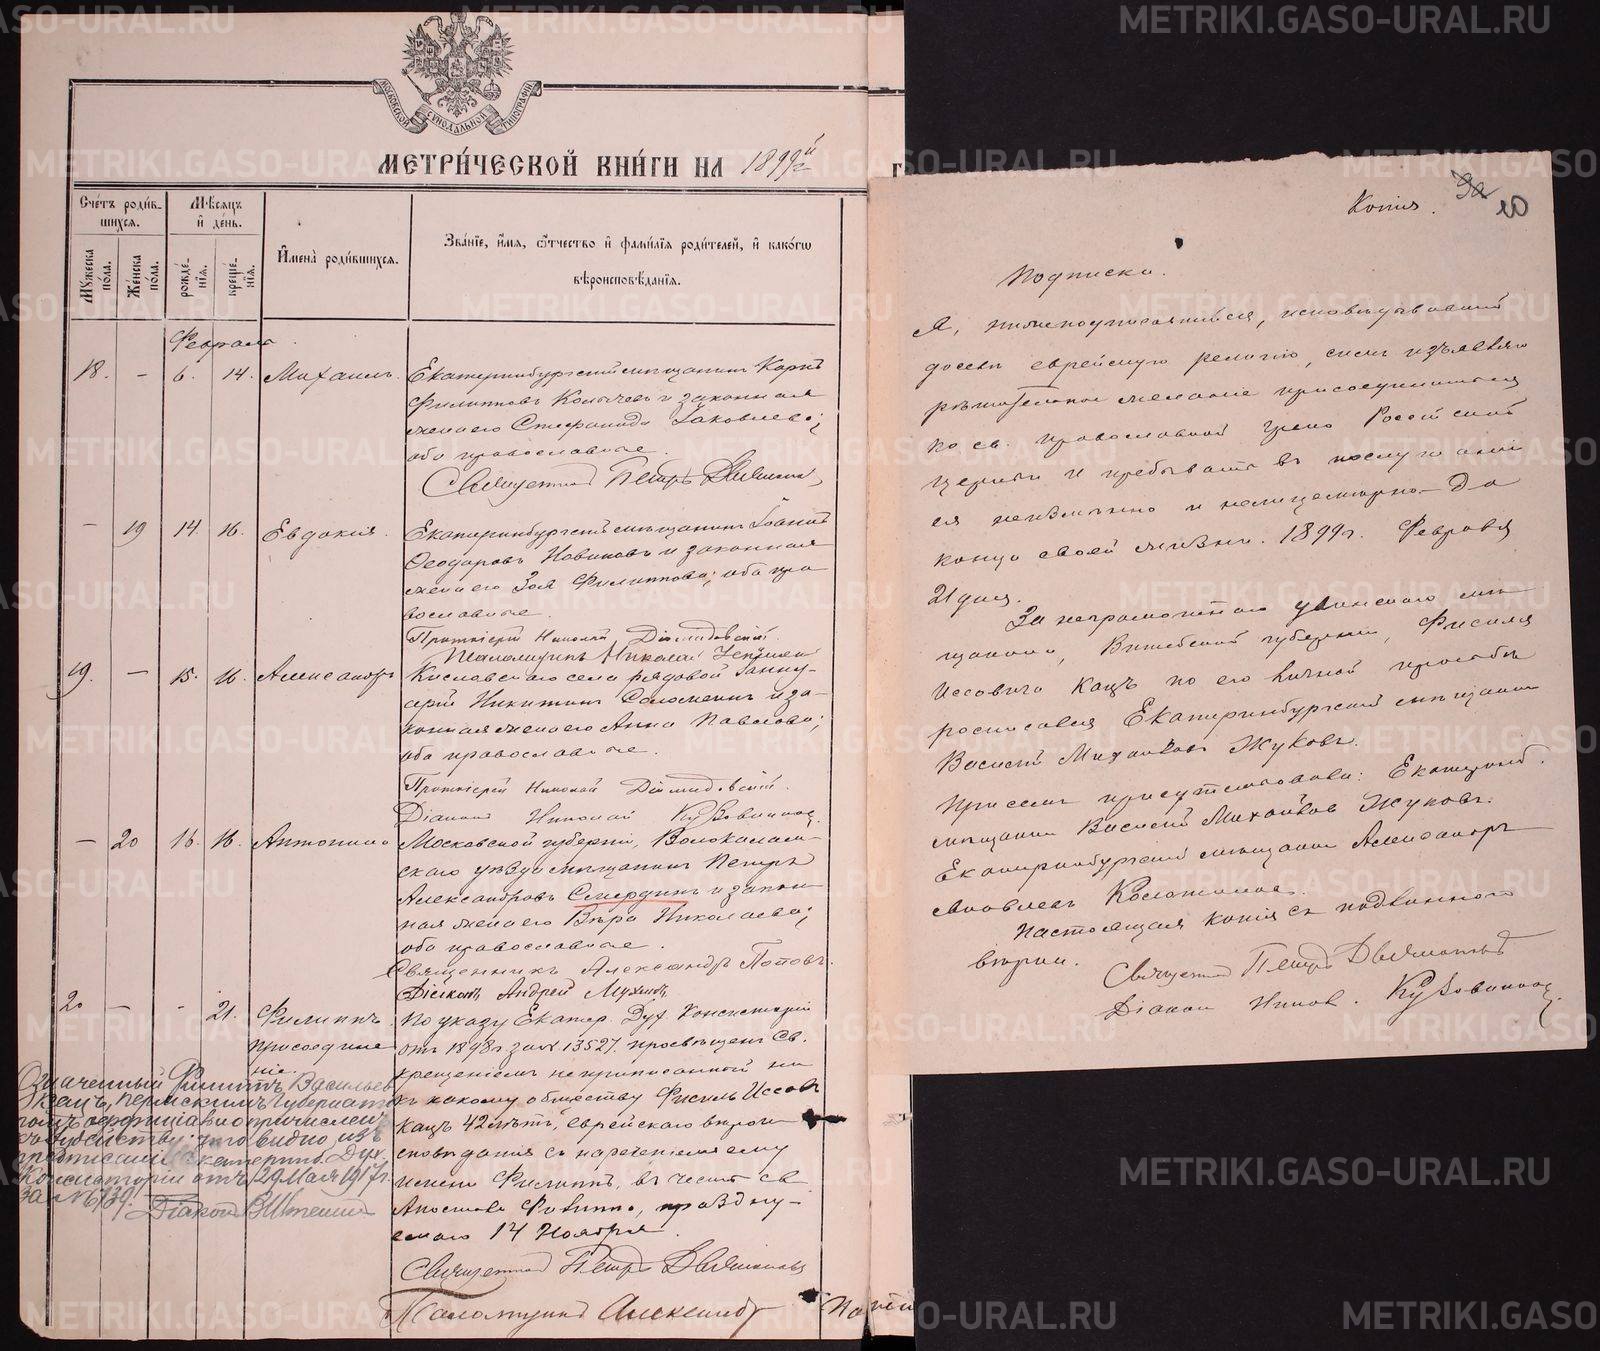 МОСКОВСКОЙ СУНОДАЛЬНОЙ ТИПОГРАФІИ
МЕТРИ́ЧЕСКОЙ КНИ́ГИ НА 1899й г.
Счётъ роди́вшихся.
Мѣ́сяцъ и҆ де́нь.
И҆мена̀ роди́вшихся.
Зва́нїе, и҆́мя, ѻ҆́тчество и҆ фами́лїя роди́телей, и҆ како́гѡ вѣроисповѣ́данїя.
Мꙋ́жеска по́ла.
Же́нска по́ла.
рожде́нїя.
креще́нїя.
Февраля
18. - 6. 14. Михаилъ.
Екатеринбургскій мѣщанинъ Карпъ
Филипповъ Копычев и законная
жена его Стефанида Іаковлева;
оба православные.
Священникъ Петръ
- 19 14. 16. Евдокія.
Екатеринбургскій мѣщанинъ Іоаннъ
Ѳеодоровъ Новиковъ и законная
жена его Зоя Филиппова; оба пра
вославные.
Протоіерей Николай Діомидовскій.
Псаломщикъ Николай
19. - 15. 16. Александръ
Кисловскаго села рядовой Іанну-
арій Никитинъ Соломеинъ и за-
конная жена его Анна Павлова;
оба православные.
Протоіерей Николай Діомидовскій.
Діаконъ Николай Кузовников
- 20 16. 16. Антонина
Московской губерніи, Волоколам-
скаго уѣзда мѣщанинъ Петръ
Александровъ Смердинъ и закон
ная жена его Вѣра Николаева;
оба православные.
Священникъ Александръ Поповъ.
Діаконъ Андрей Мухинъ
20 - - 21. Филиппъ.
присоедине
ніе.
По указу Екатер. Дух. Консисторіи
отъ 1898 г. за № 13527. просвѣщенъ Св.
крещеніемъ не приписанный ни
къ какому обществу Фисель Иссов
Кацъ 42 лѣтъ, еврейскаго вѣрои
сповѣданія съ нареченіемъ ему
имени Филиппъ, въ честь св.
Апостола Филиппа, праздну-
емаго 14 Ноября.
Священникъ Петръ
Псаломщикъ Александр
Означенный Филиппъ Васильев
Кацъ, Пермскимъ Губернато
ромъ оффиціально причислен
чего видно изъ
Екатеринб. Дух.
Консисторіи отъ 29 Мая 1917 г.
за №
Діакон
Копія.
9а
10
Подписка.
Я, нижеподписавшійся, исповѣдывавшій
доселѣ еврейскую религію, симъ изъявляю
рѣшительное желаніе присоединиться
ко св. православной Греко Россійской
церкви и пребывать въ послушаніи
ея неизмѣнно и нелицемѣрно до
конца своей жизни. 1899 г. Февраля
21 дня.
За неграмотнаго Двинского мѣ
щанина, Витебской губерніи, Фиселя
Иссовича Кацъ по его личной просьбѣ
росписался Екатеринбургскій мѣщанинъ
Василій Михайловъ Жуковъ.
При семъ присутствовали: Екатеринб.
мѣщанинъ Василій Михайловъ Жуковъ.
Екатеринбургскій мѣщанинъ Александръ
Яковлевъ
Настоящая копія съ подлиннаго
вѣрна.
Священникъ Петръ
Діакон Никол. Кузовников